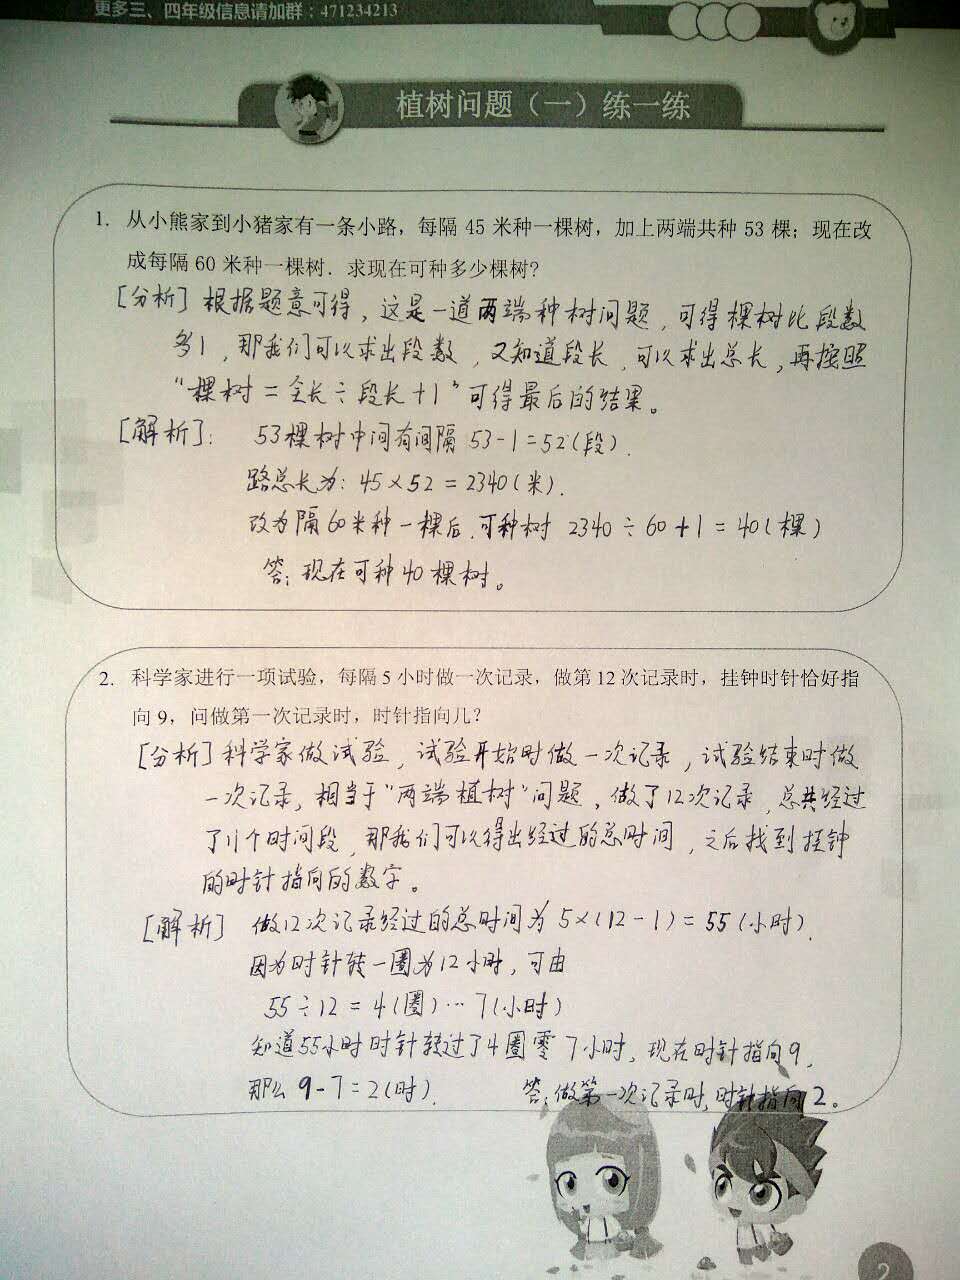 更多三、四年级信息请加群：471234213
植树问题（一）练一练
1. 从小熊家到小猪家有一条小路，每隔 45 米种一棵树，加上两端共种 53 棵；现在改
成每隔 60 米种一棵树．求现在可种多少棵树?
[分析] 根据题意可得，这是一道两端种树问题，可得棵树比段数
多1，那我们可以求出段数，又知道段长，可以求出总长，再按照
“棵树＝全长÷段长＋1”可得最后的结果。
[解析]： 53棵树中间有间隔 53-1=52(段).
路总长为：45×52=2340(米).
改为隔60米种一棵后，可种树 2340÷60+1=40(棵)
答：现在可种40棵树。
2. 科学家进行一项试验，每隔 5 小时做一次记录，做第 12 次记录时，挂钟时针恰好指
向 9，问做第一次记录时，时针指向几?
[分析] 科学家做试验，试验开始时做一次记录，试验结束时做
一次记录，相当于“两端植树”问题，做了12次记录，总共经过
了11个时间段，那我们可以得出经过的总时间，之后找到挂钟
的时针指向的数字。
[解析] 做12次记录经过的总时间为 5×(12-1)=55(小时).
因为时针转一圈为12小时，可由
55÷12=4(圈)…7(小时)
知道55小时时针转过了4圈零7小时，现在时针指向9，
那么 9-7=2(时). 答：做第一次记录时，时针指向2。
2